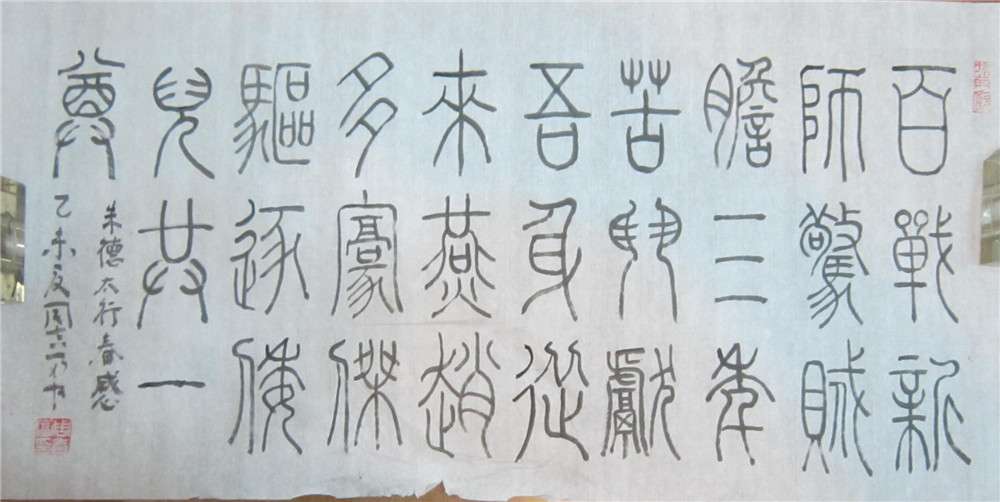 百戰新
師驚賊
膽三年
苦鬥獻
吾身從
來燕趙
多豪傑
驅逐倭
兒共一
尊
朱德太行春感
乙未夏周